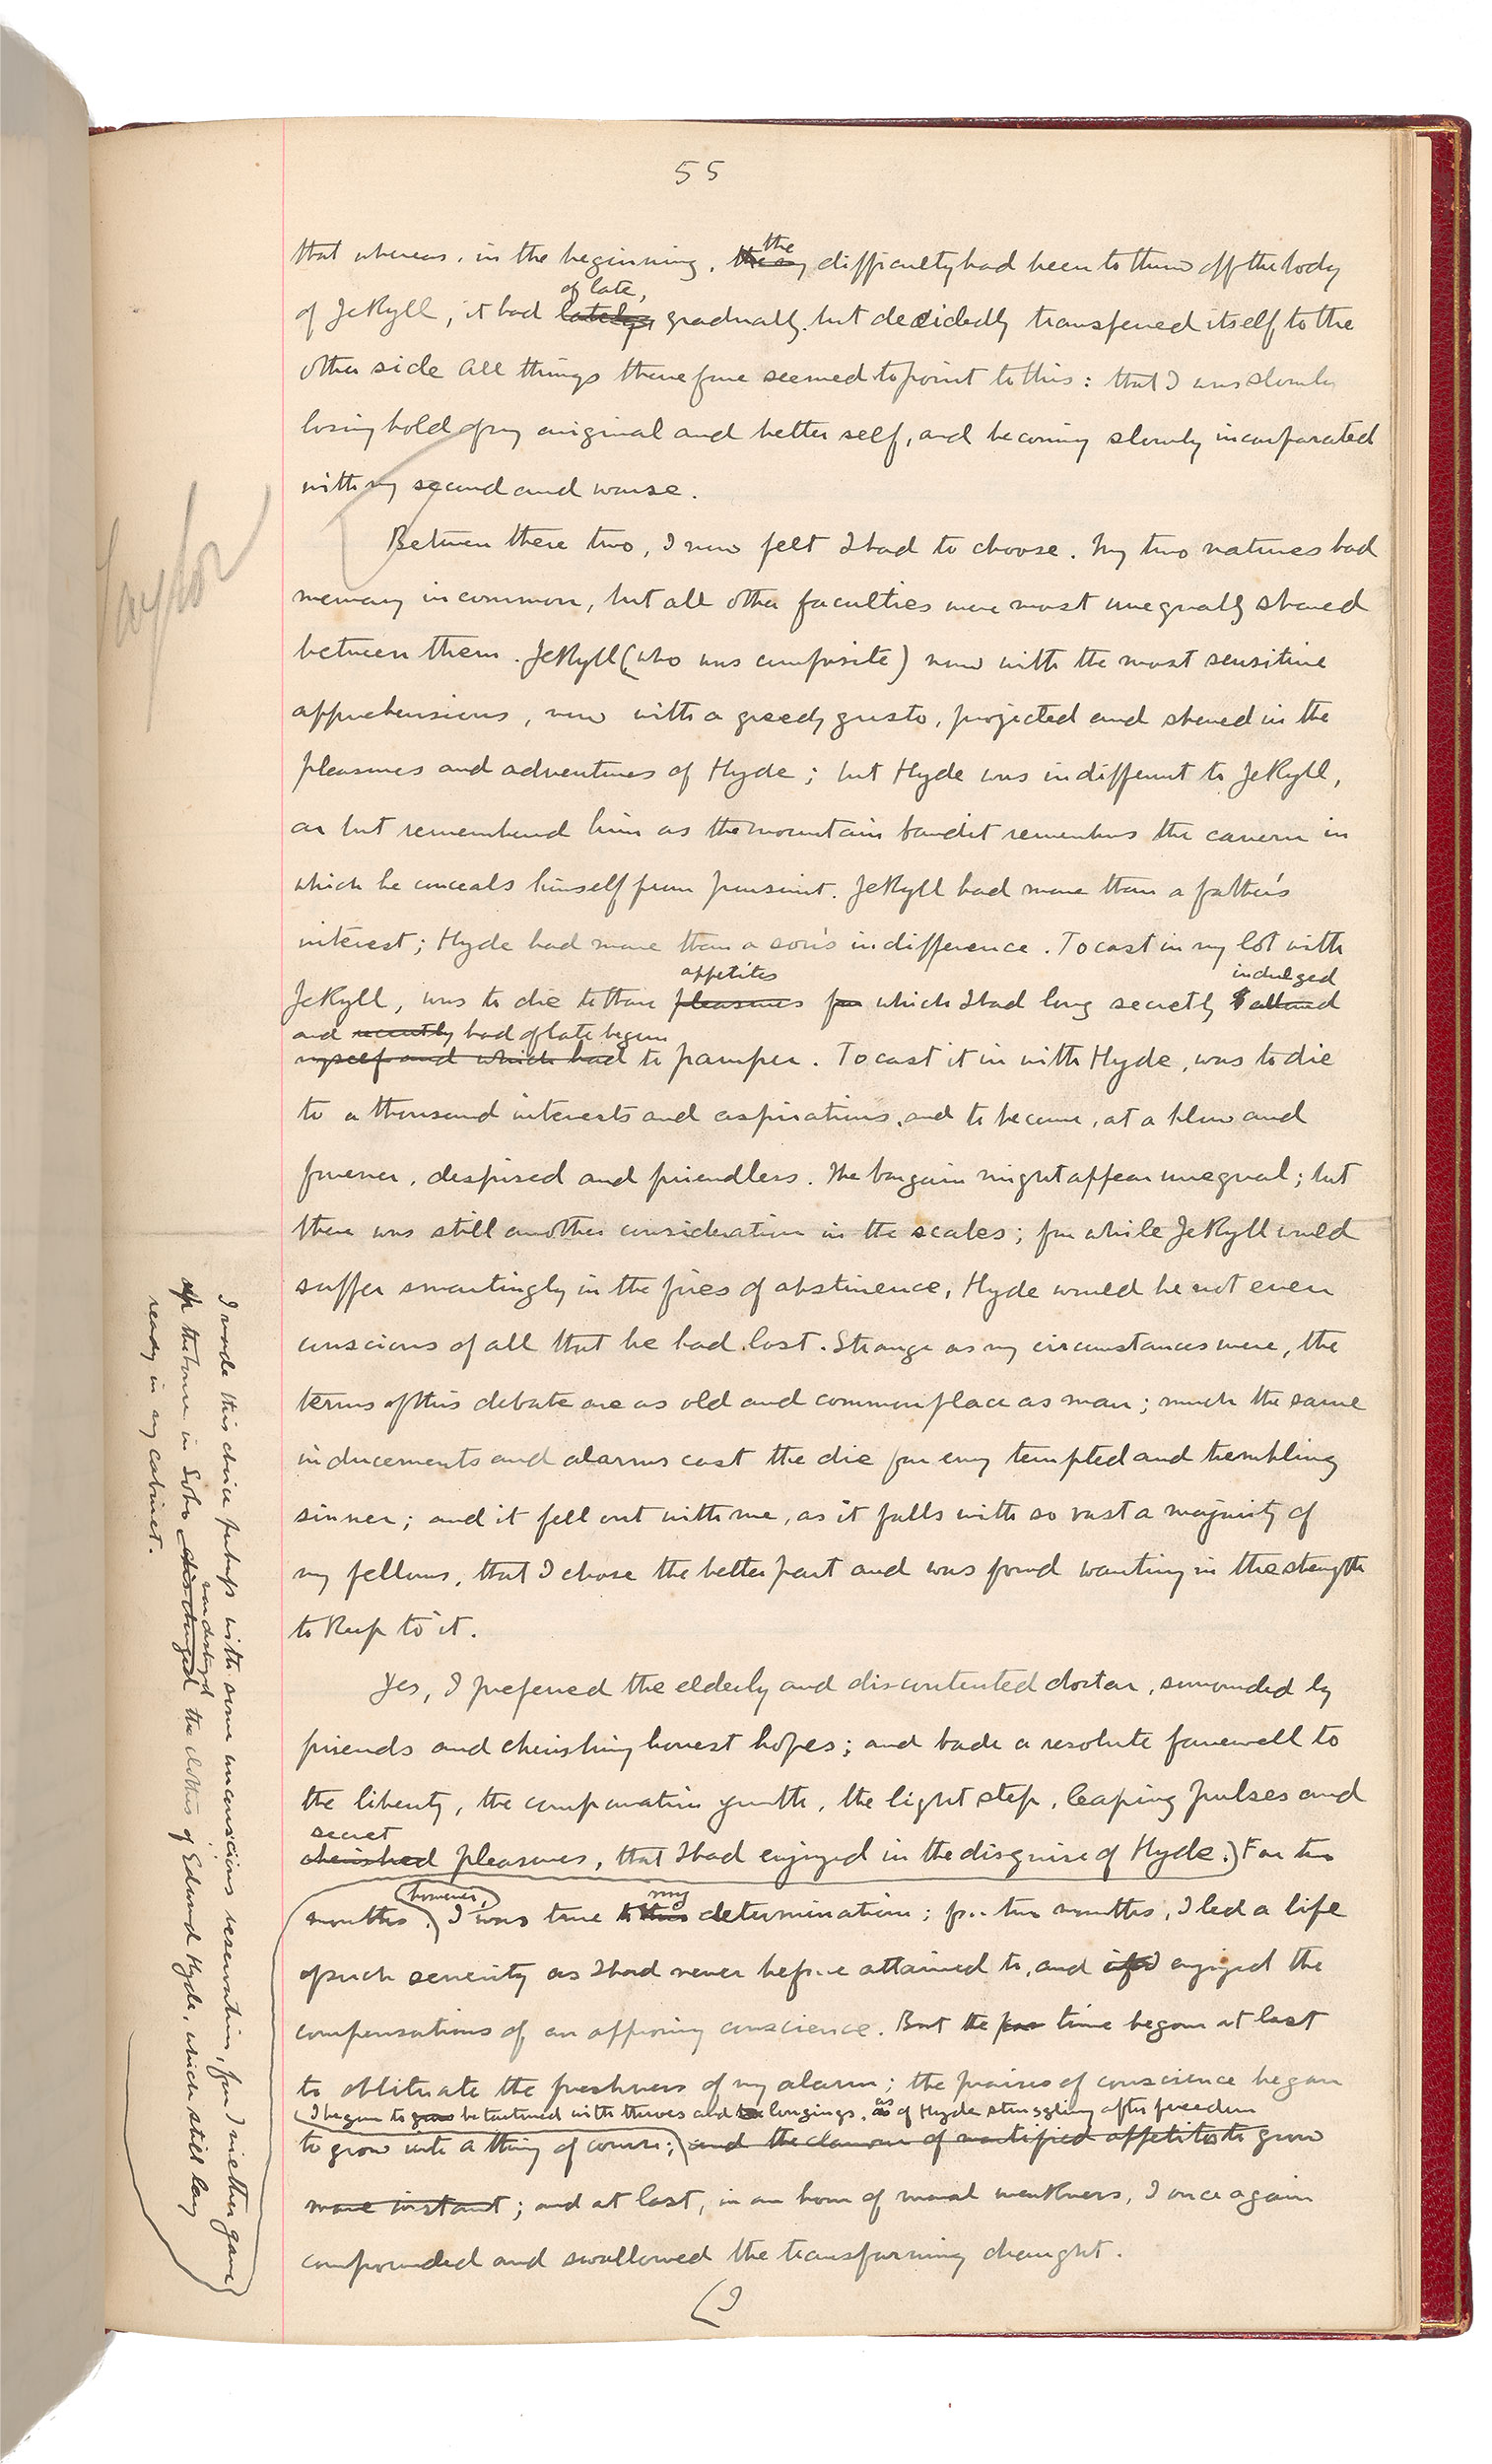 55
that whereas, in the beginning, the difficulty had been to throw off the body
of Jekyll, it had of late, gradually but decidedly transferred itself to the
other side All things therefore seemed to point to this: that I was slowly
losing hold of my original and better self, and becoming slowly incorporated
with my second and worse.
Between these two, I now felt I had to choose. My two natures had
memory in common, but all other faculties were most unequally shared
between them. Jekyll (who was composite) now with the most sensitive
apprehensions, now with a greedy gusto, projected and shared in the
pleasures and adventures of Hyde; but Hyde was indifferent to Jekyll,
or but remembered him as the mountain bandit remembers the cavern in
which he conceals himself from pursuit. Jekyll had more than a father's
interest; Hyde had more than a son's indifference. To cast in my lot with
appetites indulged
Jekyll, was to die to those pleasures for which I had long secretly allowed
and recently had of late begun
myself and which had to pamper. To cast it in with Hyde, was to die
to a thousand interests and aspirations, and to become, at a blow and
forever, despised and friendless. The bargain might appear unequal; but
there was still another consideration in the scales; for while Jekyll would
suffer smartingly in the fires of abstinence, Hyde would be not even
conscious of all that he had lost. Strange as my circumstances were, the
terms of this debate are as old and commonplace as man; much the same
inducements and alarms cast the die for any tempted and trembling
sinner; and it fell out with me, as it falls with so vast a majority of
my fellows, that I chose the better part and was found wanting in the strength
to keep to it.
Yes, I preferred the elderly and discontented doctor, surrounded by
friends and cherishing honest hopes; and bade a resolute farewell to
the liberty, the comparative youth, the light step, leaping pulses and
secret
cherished pleasures, that I had enjoyed in the disguise of Hyde. For two
however, my
months, I was true to this determination; for two months, I led a life
of such severity as I had never before attained to, and enjoyed the
compensations of an approving conscience. But the time began at last
to obliterate the freshness of my alarm; the praises of conscience began
I began to be tortured with throes and longings, as of Hyde struggling after freedom
to grow into a thing of course; and the clamour of mortified appetites to grow
more instant; and at last, in an hour of moral weakness, I once again
compounded and swallowed the transforming draught.
(I
Taylor
I made this choice perhaps with some unconscious reservation, for I neither gave
up the house in Soho nor destroyed discharged the clothes of Edward Hyde, which still lay
ready in my cabinet.